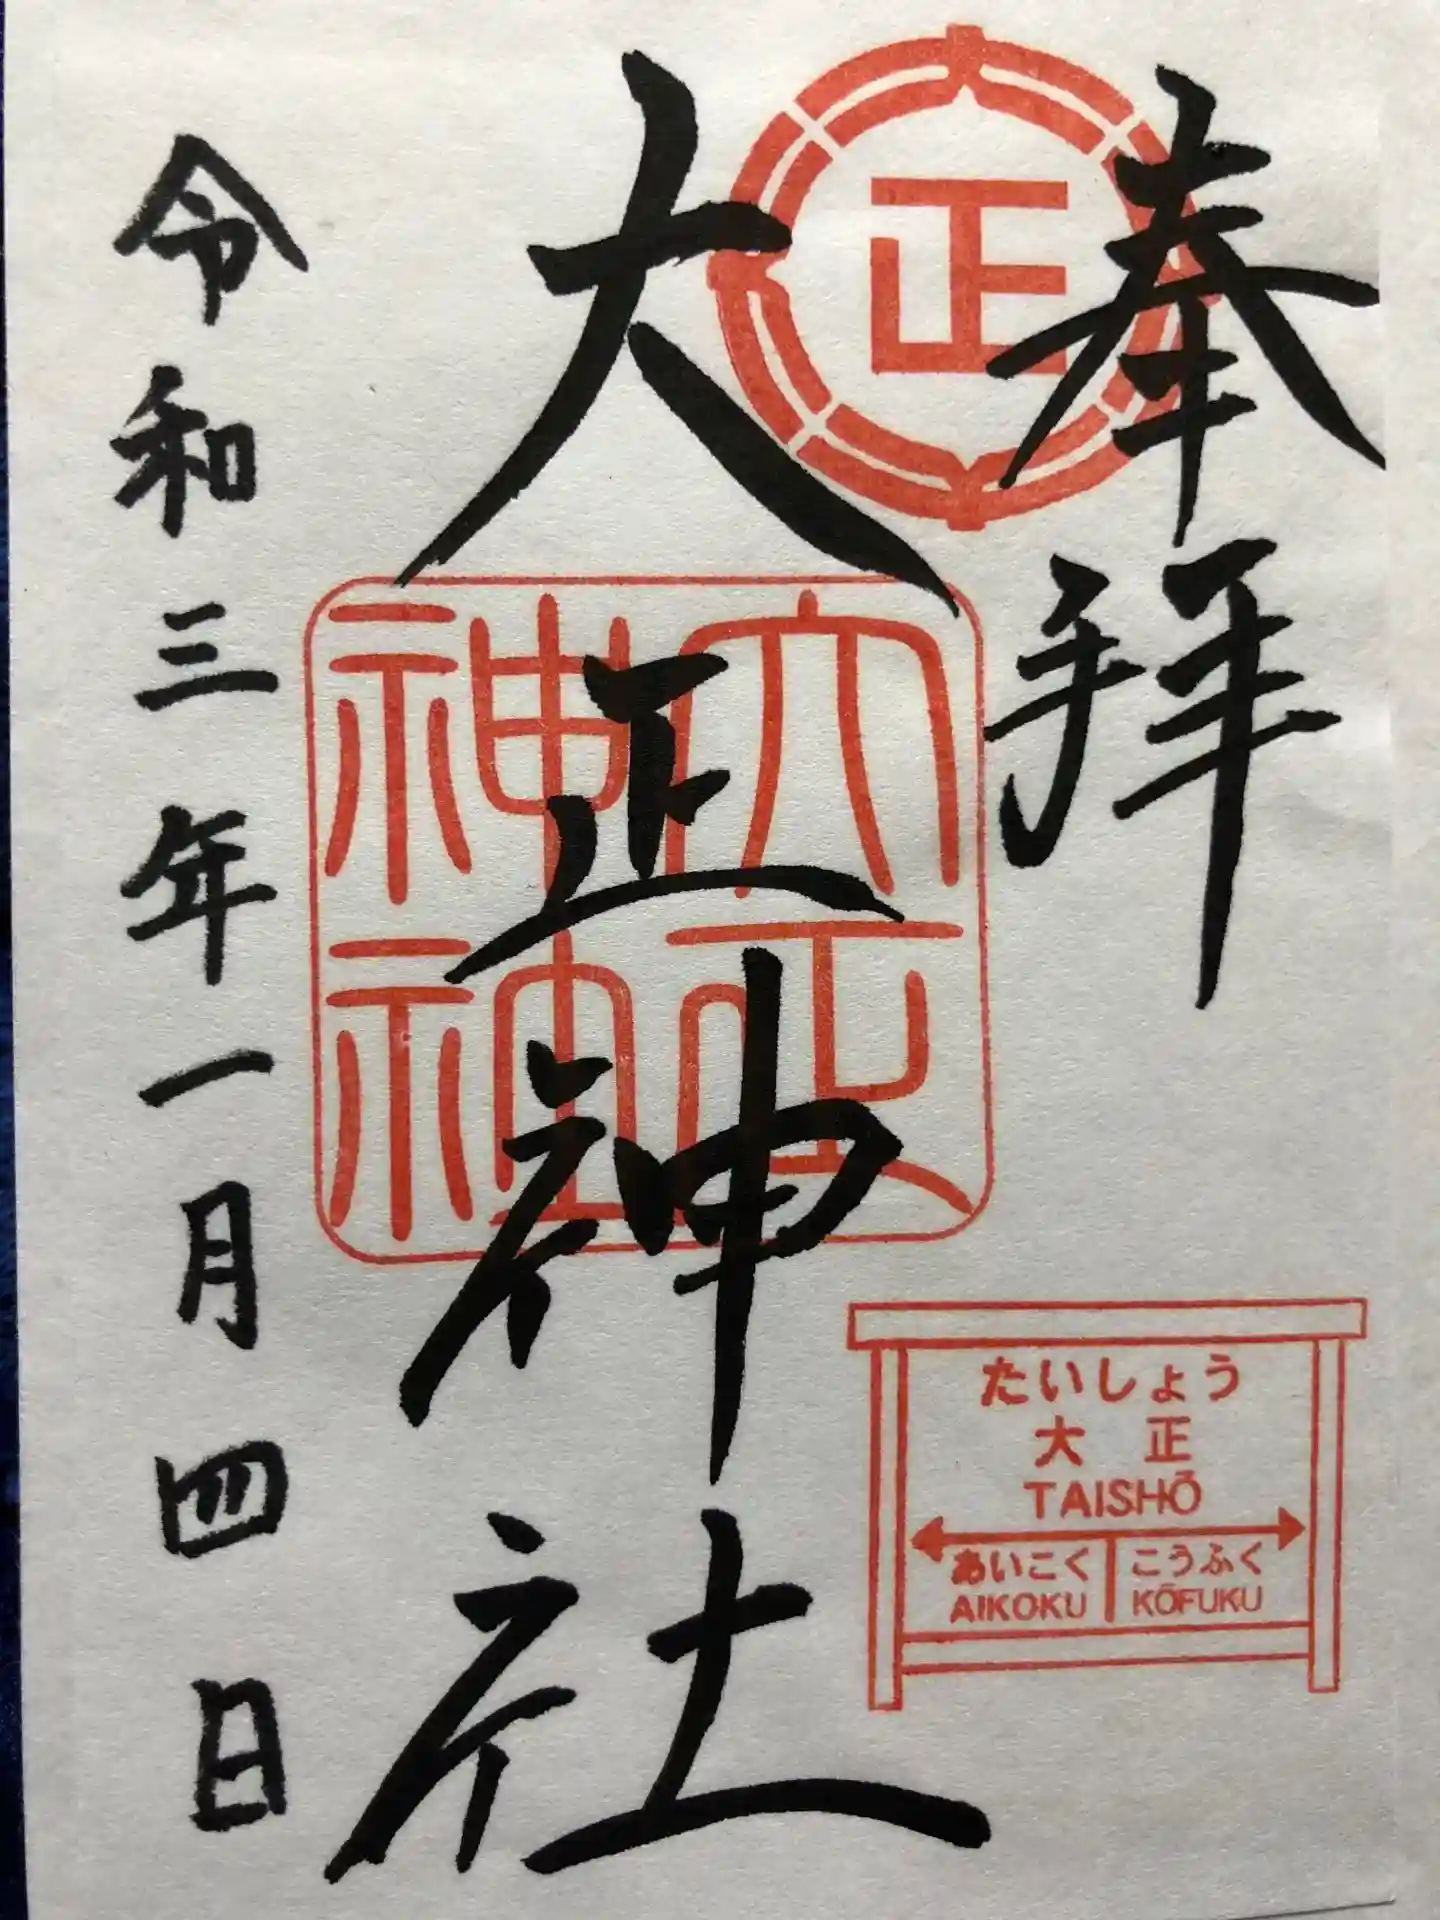 奉拝
正
大正神社
大正
神社
たいしょう
大正
TAISHŌ
あいこく
AIKOKU
こうふく
KŌFUKU
令和三年一月四日